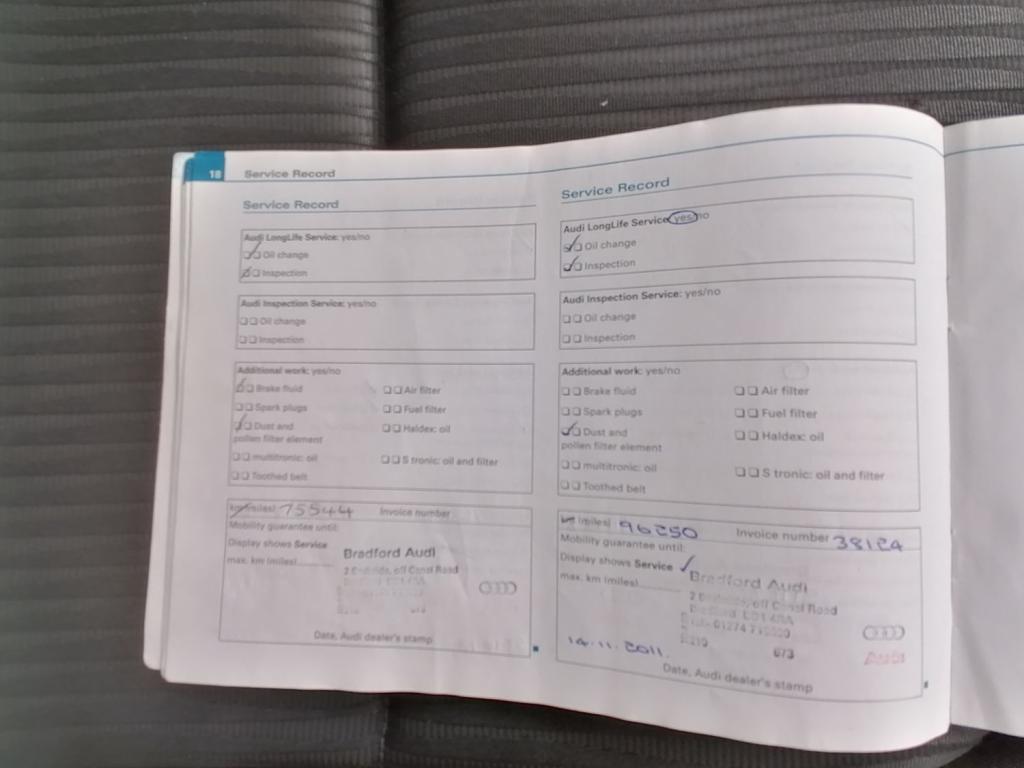 18 Service Record
Service Record
Audi LongLife Service: yes/no
Oil change
Inspection
Audi Inspection Service: yes/no
Oil change
Inspection
Additional work: yes/no
Brake fluid Air filter
Spark plugs Fuel filter
Dust and Haldex: oil
pollen filter element
multitronic: oil S tronic: oil and filter
Toothed belt
km (miles) 75544 Invoice number
Mobility guarantee until:
Display shows Service
max. km (miles)
Bradford Audi
off Canal Road
Date, Audi dealer's stamp
Service Record
Audi LongLife Service: yes/no
Oil change
Inspection
Audi Inspection Service: yes/no
Oil change
Inspection
Additional work: yes/no
Brake fluid Air filter
Spark plugs Fuel filter
Dust and Haldex: oil
pollen filter element
multitronic: oil S tronic: oil and filter
Toothed belt
km (miles) 96250 Invoice number
Mobility guarantee until:
Display shows Service
max. km (miles)
Bradford Audi
off Canal Road
01274
673
Audi
14.11.2011.
Date, Audi dealer's stamp